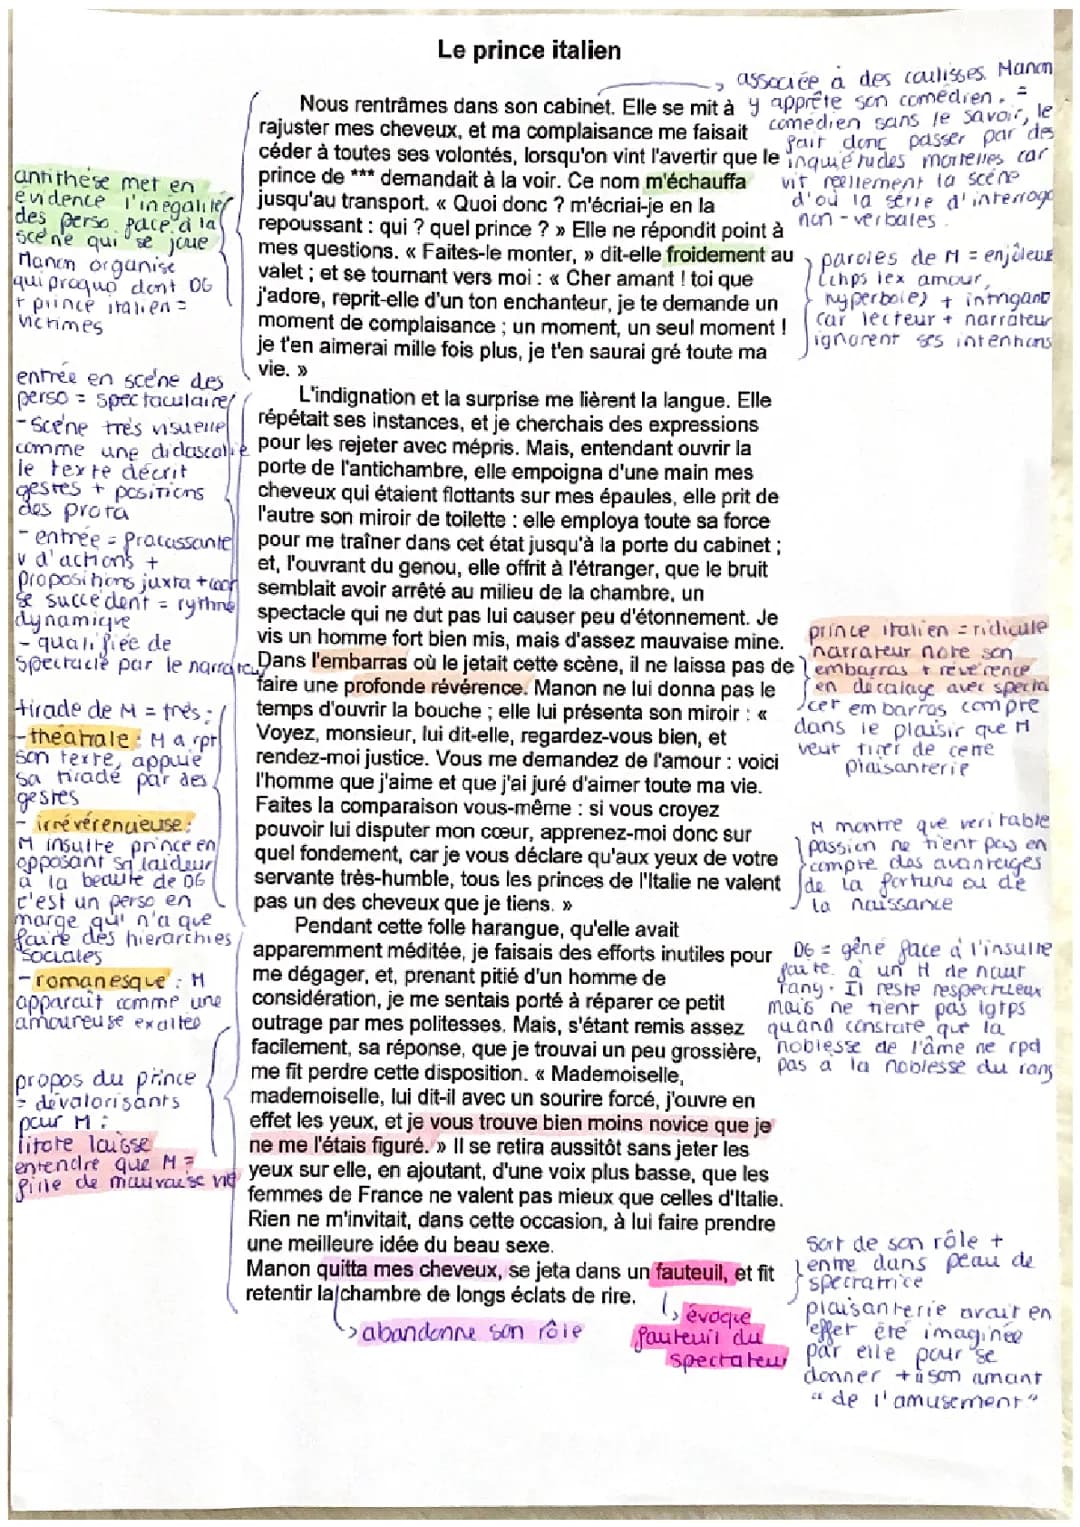 Le prince italien
Nous rentrâmes dans son cabinet. Elle se mit à
rajuster mes cheveux, et ma complaisance me faisait
céder à toutes ses volontés, lorsqu'on vint l'avertir que le
prince de *** demandait à la voir. Ce nom m'échauffa
jusqu'au transport. « Quoi donc ? m'écriai-je en la
repoussant : qui ? quel prince ? » Elle ne répondit point à
mes questions. « Faites-le monter, » dit-elle froidement au
valet ; et se tournant vers moi : « Cher amant ! toi que
j'adore, reprit-elle d'un ton enchanteur, je te demande un
moment de complaisance ; un moment, un seul moment !
je t'en aimerai mille fois plus, je t'en saurai gré toute ma
vie. »
L'indignation et la surprise me lièrent la langue. Elle
répétait ses instances, et je cherchais des expressions
pour les rejeter avec mépris. Mais, entendant ouvrir la
porte de l'antichambre, elle empoigna d'une main mes
cheveux qui étaient flottants sur mes épaules, elle prit de
l'autre son miroir de toilette : elle employa toute sa force
pour me traîner dans cet état jusqu'à la porte du cabinet ;
et, l'ouvrant du genou, elle offrit à l'étranger, que le bruit
semblait avoir arrêté au milieu de la chambre, un
spectacle qui ne dut pas lui causer peu d'étonnement. Je
vis un homme fort bien mis, mais d'assez mauvaise mine.
Dans l'embarras où le jetait cette scène, il ne laissa pas de
faire une profonde révérence. Manon ne lui donna pas le
temps d'ouvrir la bouche ; elle lui présenta son miroir : «
Voyez, monsieur, lui dit-elle, regardez-vous bien, et
rendez-moi justice. Vous me demandez de l'amour : voici
l'homme que j'aime et que j'ai juré d'aimer toute ma vie.
Faites la comparaison vous-même : si vous croyez
pouvoir lui disputer mon cœur, apprenez-moi donc sur
quel fondement, car je vous déclare qu'aux yeux de votre
servante très-humble, tous les princes de l'Italie ne valent
pas un des cheveux que je tiens. »
Pendant cette folle harangue, qu'elle avait
apparemment méditée, je faisais des efforts inutiles pour
me dégager, et, prenant pitié d'un homme de
considération, je me sentais porté à réparer ce petit
outrage par mes politesses. Mais, s'étant remis assez
facilement, sa réponse, que je trouvai un peu grossière,
me fit perdre cette disposition. « Mademoiselle,
mademoiselle, lui dit-il avec un sourire forcé, j'ouvre en
effet les yeux, et je vous trouve bien moins novice que je
ne me l'étais figuré. » Il se retira aussitôt sans jeter les
yeux sur elle, en ajoutant, d'une voix plus basse, que les
femmes de France ne valent pas mieux que celles d'Italie.
Rien ne m'invitait, dans cette occasion, à lui faire prendre
une meilleure idée du beau sexe.
Manon quitta mes cheveux, se jeta dans un fauteuil, et fit
retentir la chambre de longs éclats de rire.
antithèse met en
évidence l'inégalité
des perso face à la
scène qui se joue
Manon organise
quiproquo dont DG
+ prince italien =
victimes
entrée en scène des
perso = spectaculaire
- scène très visuelle
comme une didascalie
le texte décrit
gestes + positions
des prota
- entrée = fracassante
v d'actions +
propositions juxta + coor
se succèdent = rythme
dynamique
- qualifiée de
spectacle par le narrateur
tirade de M = très :
- théâtrale : M a rpt
son texte, appuie
sa tirade par des
gestes
- irrévérencieuse :
M insulte prince en
opposant sa laideur
à la beauté de DG
c'est un perso en
marge qui n'a que
faire des hierarchies
sociales
- romanesque : M
apparaît comme une
amoureuse exaltée
propos du prince
= dévalorisants
pour M :
litote laisse
entendre que M =
fille de mauvaise vie
associée à des coulisses. Manon
y apprête son comédien. =
comédien sans le savoir, le
fait donc passer par des
inquiétudes mortelles car
vit réellement la scène
d'où la série d'interroga
non-verbales.
paroles de M = enjôleus
(chps lex amour,
hyperbole) + intrigant
car lecteur + narrateur
ignorent ses intentions
prince italien = ridicule
narrateur note son
embarras + révérence
en décalage avec specta
cet embarras compre
dans le plaisir que M
veut tirer de cette
plaisanterie
M montre que véritable
passion ne tient pas en
compte des avantages
de la fortune ou de
la naissance
DG = gêné face à l'insulte
faite à un H de haut
rang. Il reste respectueux
mais ne tient pas lgtps
quand constate que la
noblesse de l'âme ne rpd
pas à la noblesse du rang
sort de son rôle +
entre dans peau de
spectatrice
plaisanterie avait en
effet été imaginée
par elle pour se
donner + à son amant
"de l'amusement"
abandonne son rôle
évoque
fauteuil du
spectateur